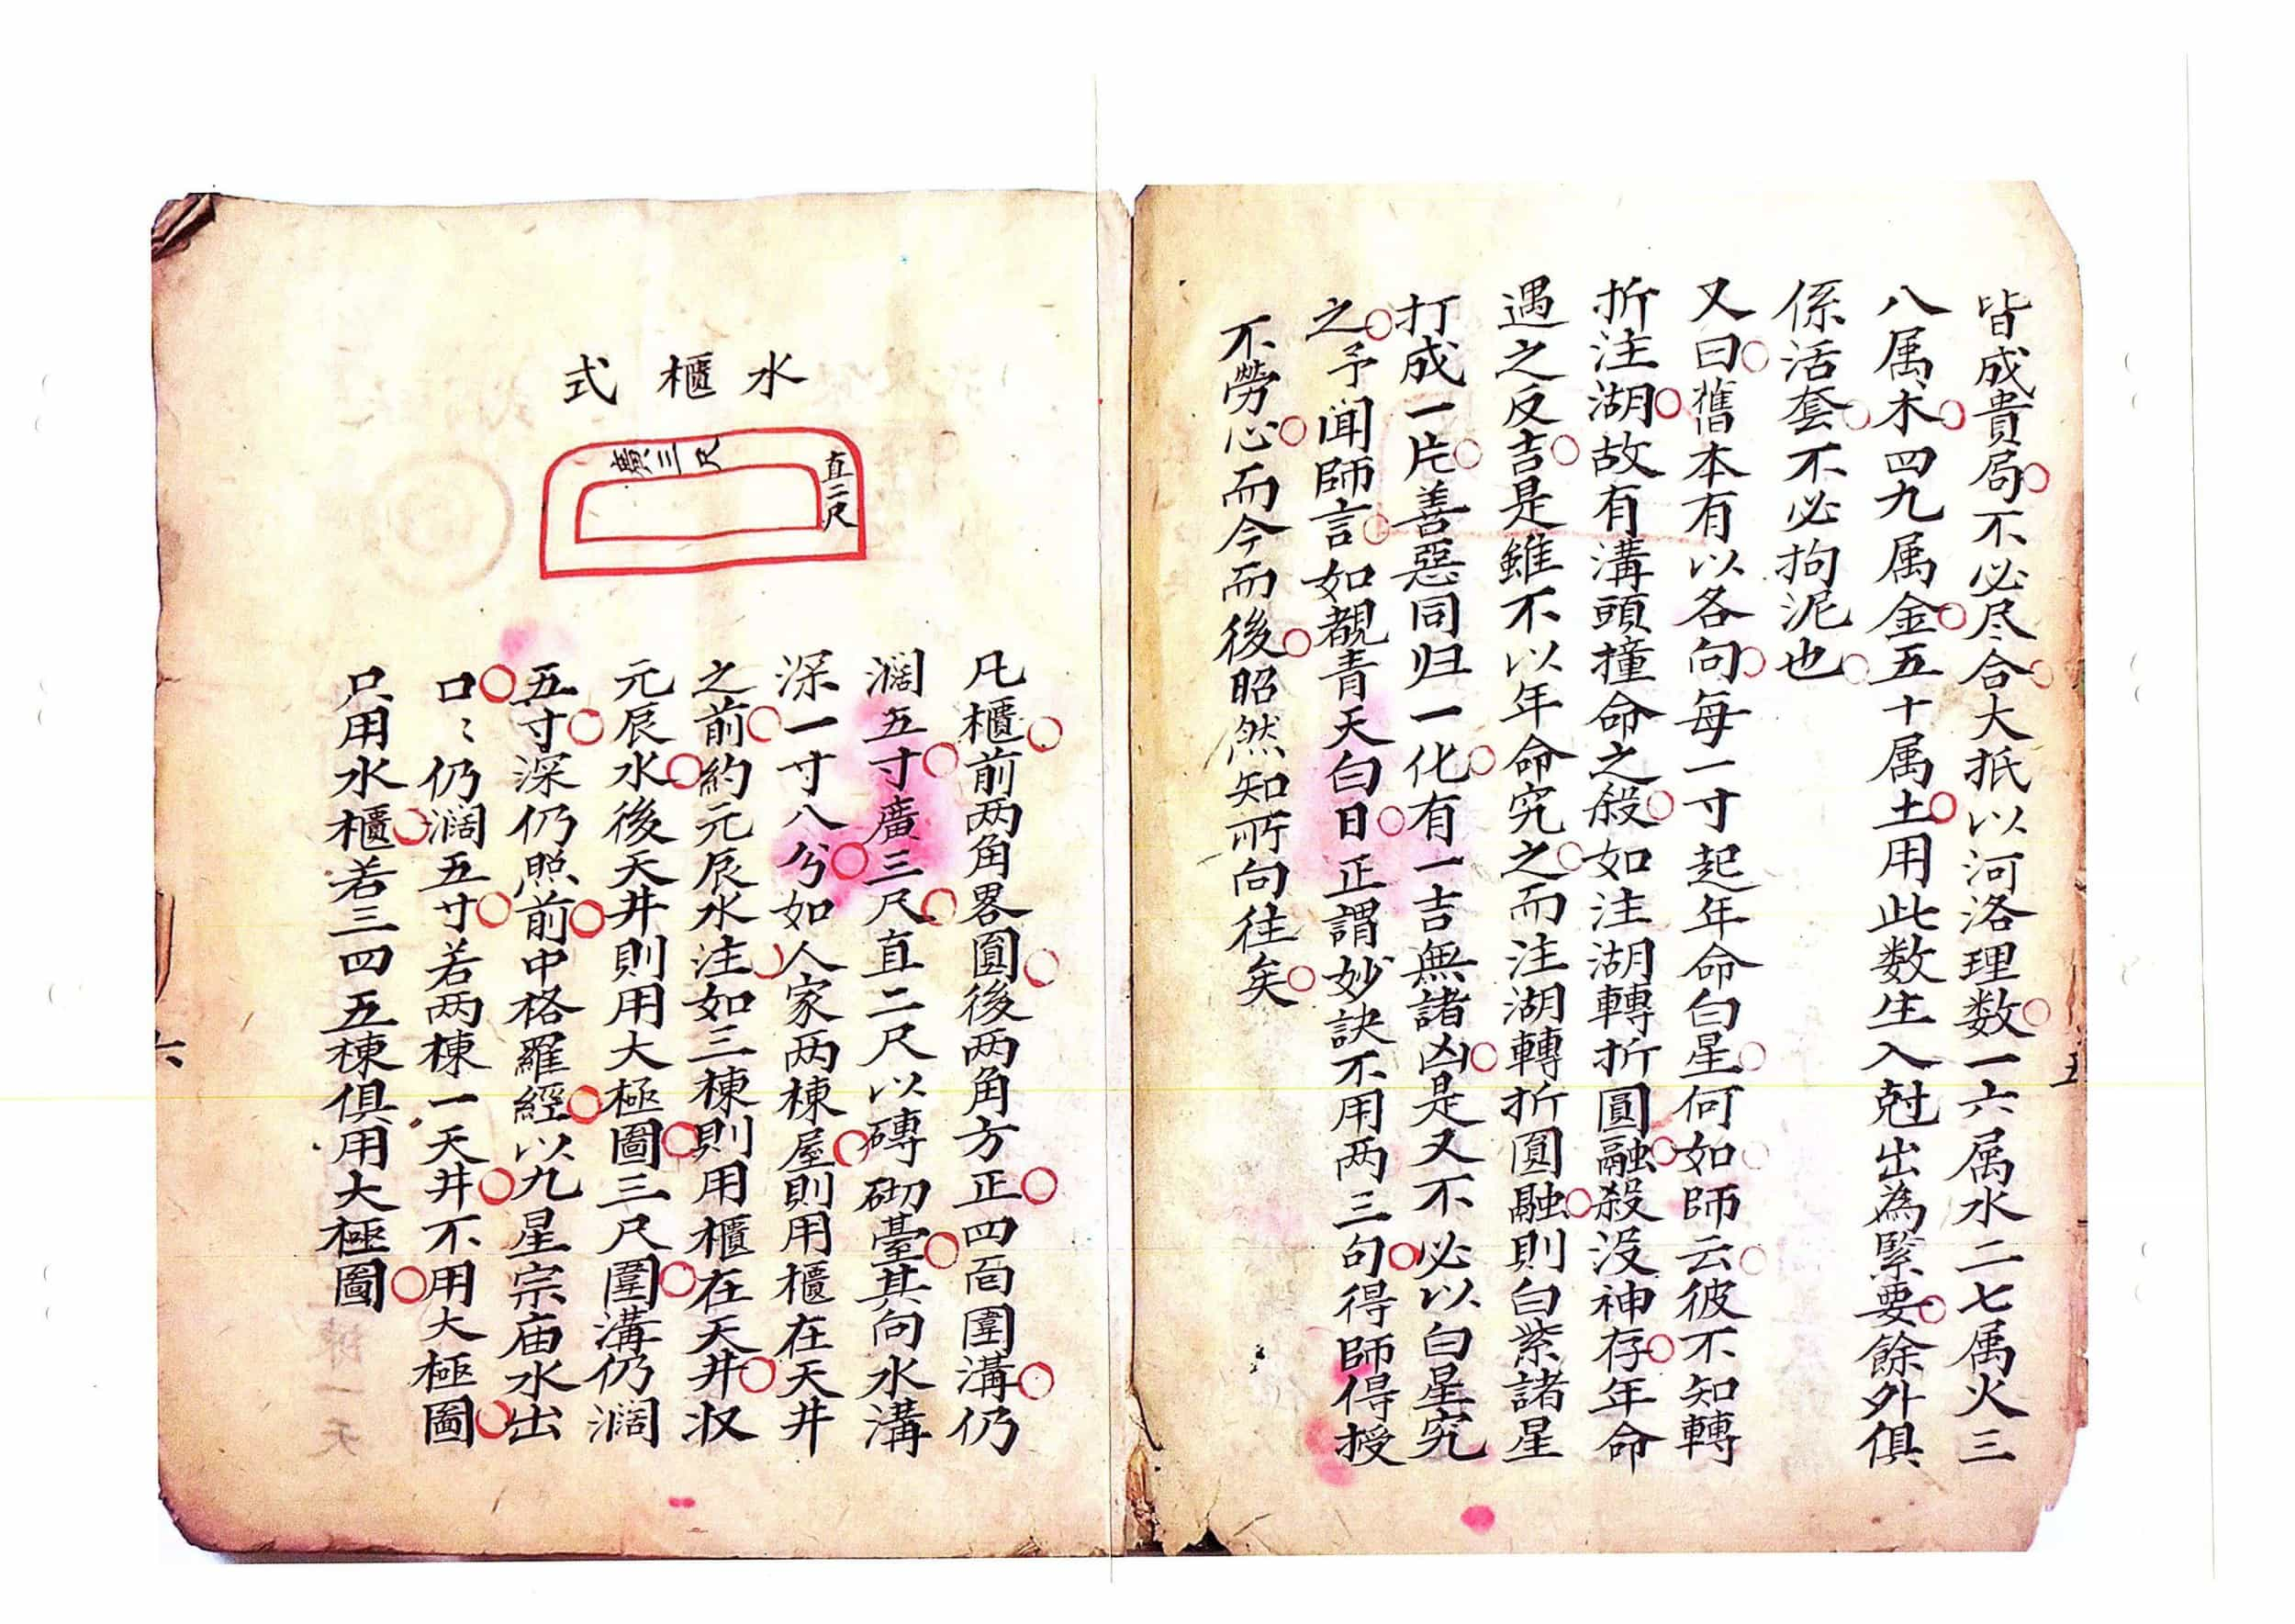 皆成貴局不必尽合大抵以河洛理数一六属水二七属火三
八属木四九属金五十属土用此数生入尅出為緊要餘外俱
係活套不必拘泥也
又曰舊本有以各向每一寸起年命白星何如師云彼不知轉
折注湖故有溝頭撞命之般如注湖轉折圓融殺没神存年命
遇之反吉是雖不以年命究之而注湖轉折圓融則白紫諸星
打成一片善惡同归一化有一吉無諸凶是又不必以白星究
之予闻師言如覩青天白日正謂妙訣不用两三句得師得授
不勞心而今而後昭然知所向往矣
五
水櫃式
廣三尺
直二尺
凡櫃前两角畧圓後两角方正四面圍溝仍
濶五寸廣三尺直二尺以磚砌臺其向水溝
深一寸八分如人家两棟屋則用櫃在天井
之前約元辰水注如三棟則用櫃在天井収
元辰水後天井則用大極圖三尺圍溝仍濶
五寸深仍照前中格羅經以九星宗庙水出
口〻仍濶五寸若两棟一天井不用大極圖
只用水櫃若三四五棟俱用大極圖
六